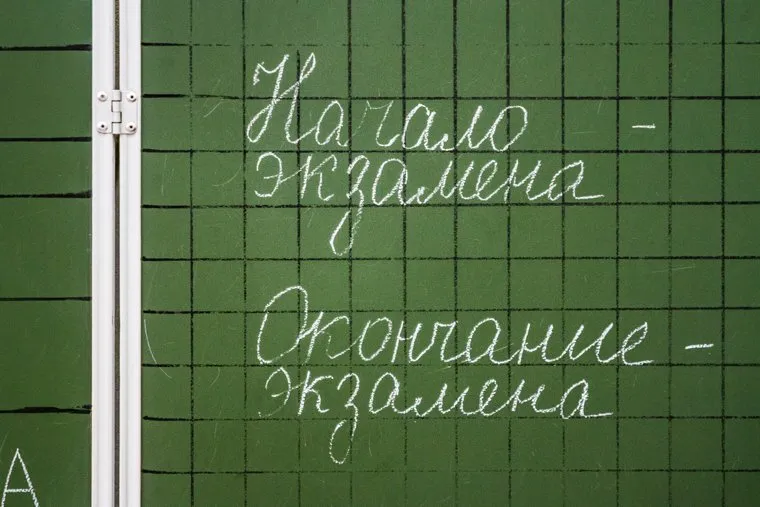 Начало -
экзамена
Окончание -
экзамена
А